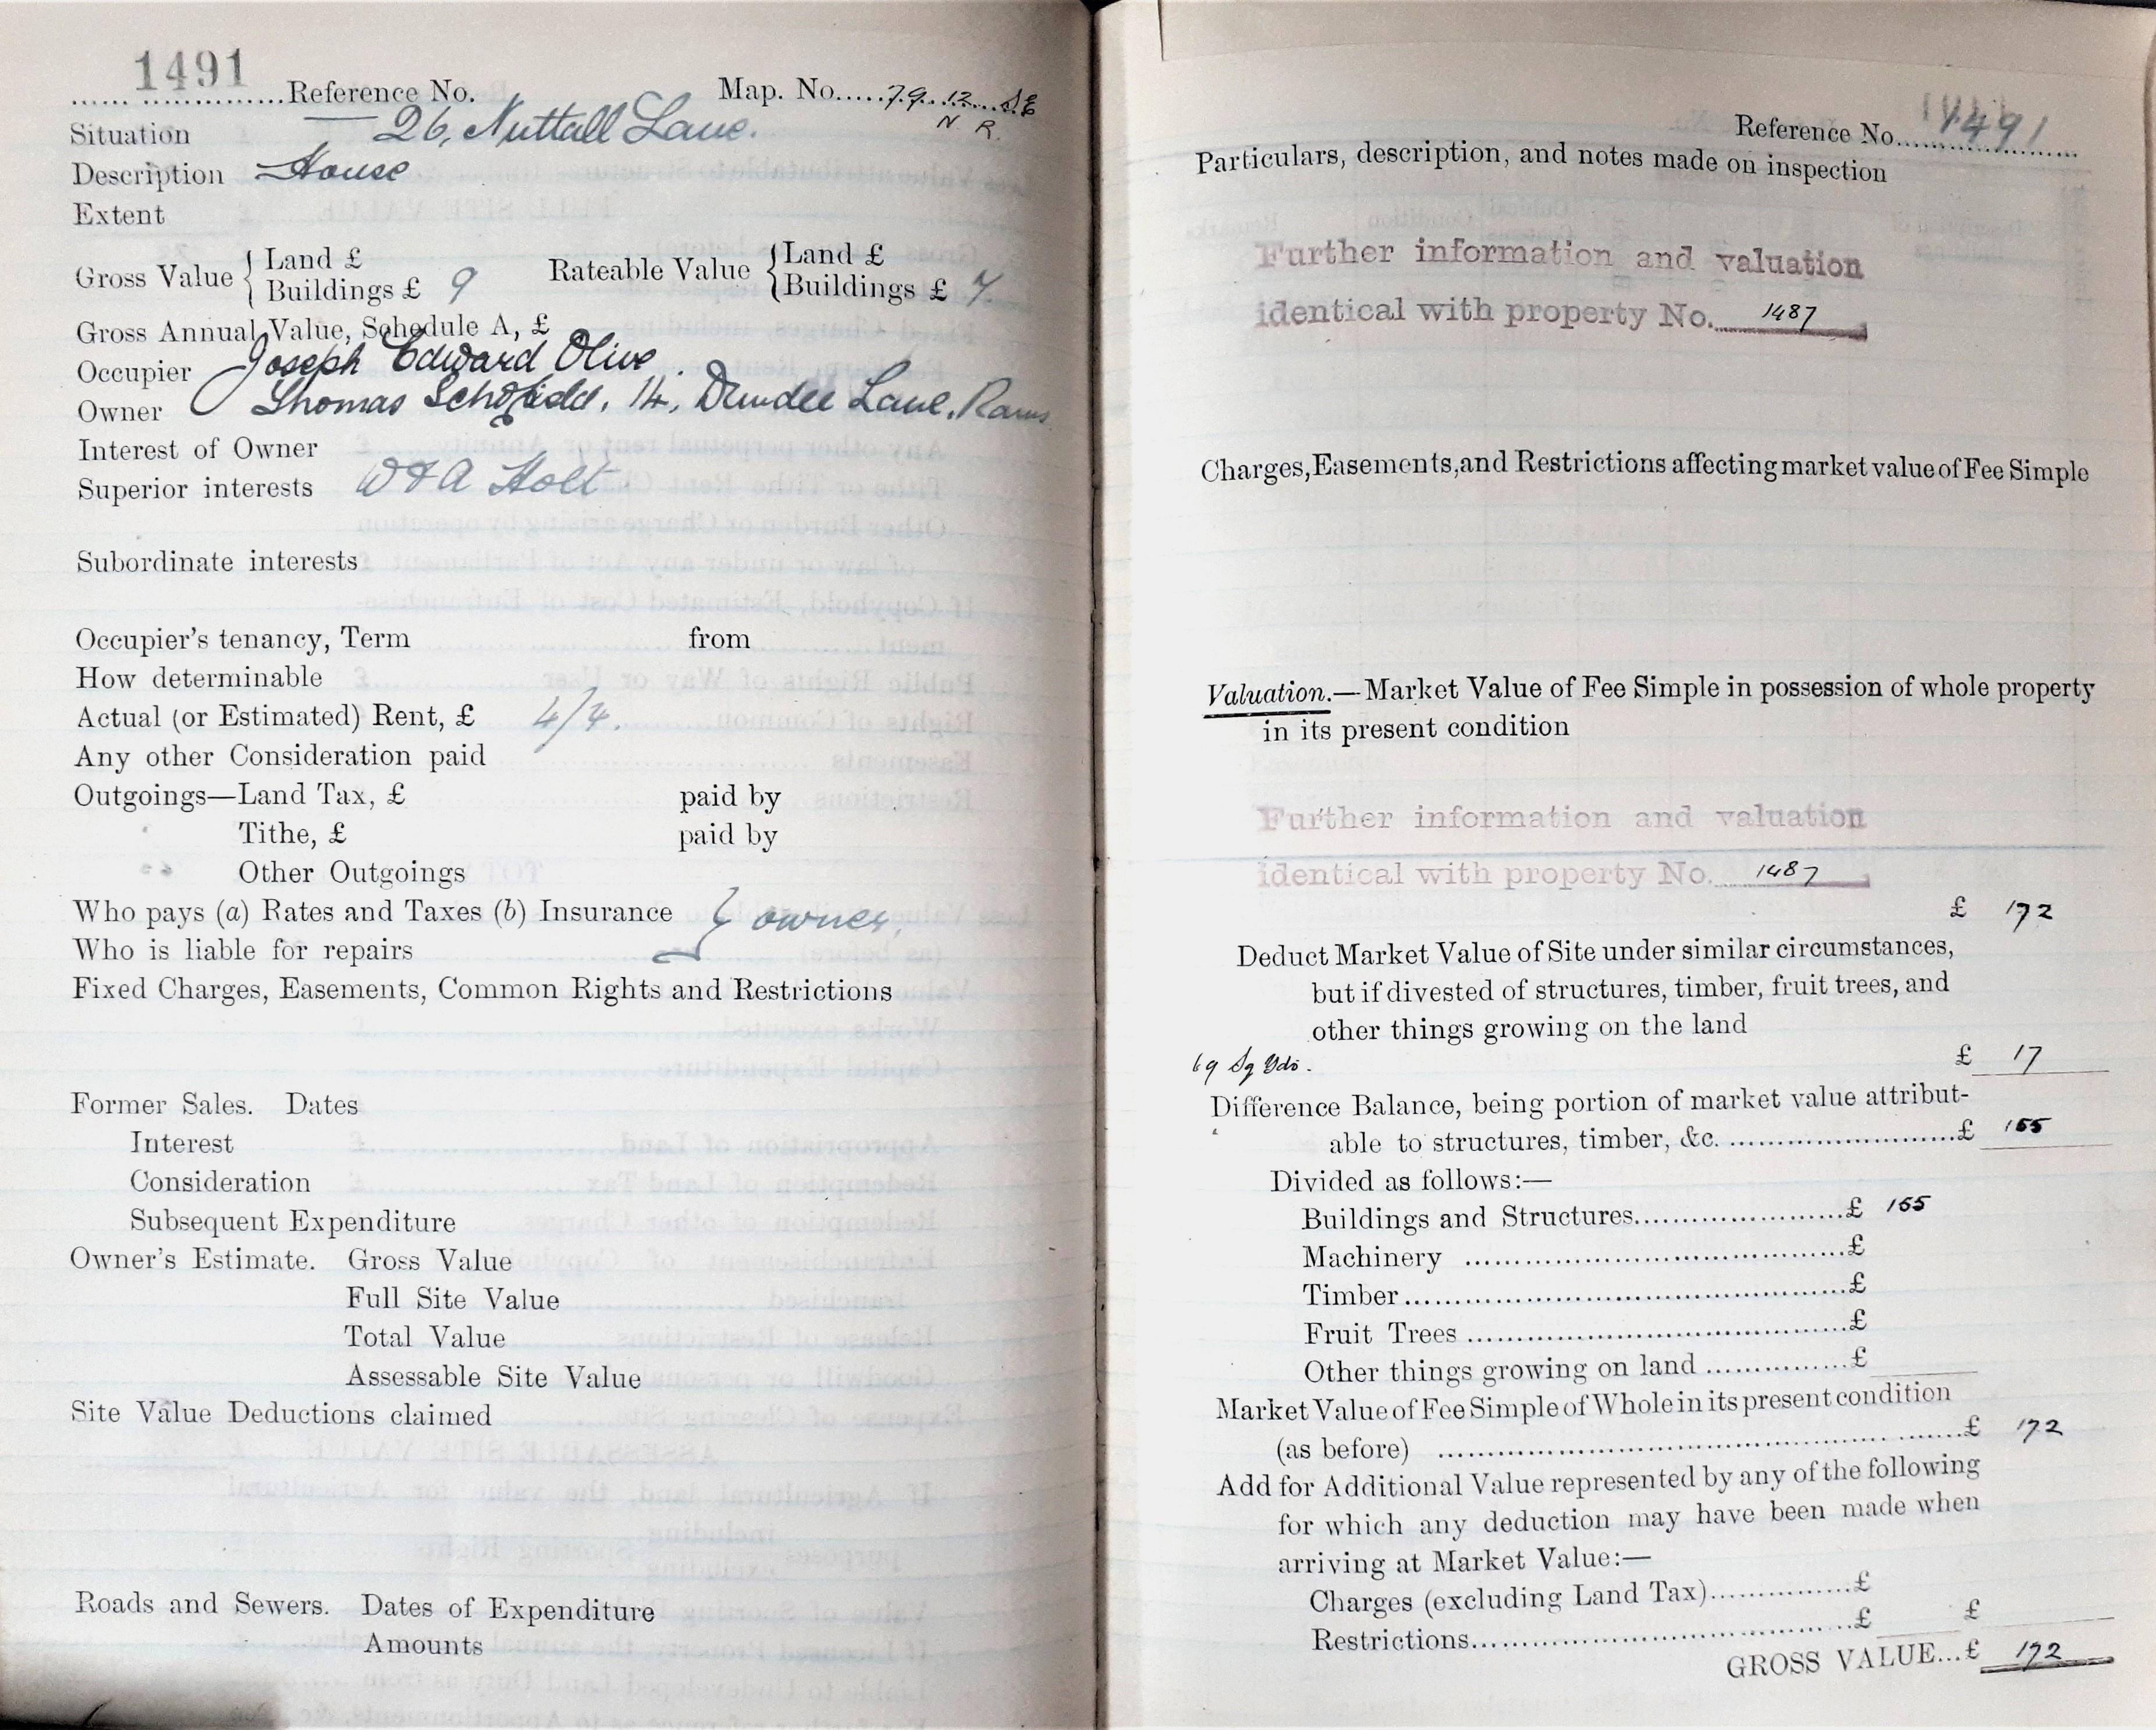 1491
...... ...............Reference No.
Map. No.....79..12...S.E
N. R.
Situation 26, Nuttall Lane.
Description House
Extent
Gross Value { Land £
Buildings £ 9
Rateable Value { Land £
Buildings £ 7
Gross Annual Value, Schedule A, £
Occupier Joseph Edward Olive
Owner Thomas Schofield, 14, Dundee Lane, Rams
Interest of Owner
Superior interests W & A Holt
Subordinate interests
Occupier's tenancy, Term from
How determinable
Actual (or Estimated) Rent, £ 4/4.
Any other Consideration paid
Outgoings—Land Tax, £ paid by
Tithe, £ paid by
Other Outgoings
Who pays (a) Rates and Taxes (b) Insurance } owner,
Who is liable for repairs
Fixed Charges, Easements, Common Rights and Restrictions
Former Sales. Dates
Interest
Consideration
Subsequent Expenditure
Owner's Estimate. Gross Value
Full Site Value
Total Value
Assessable Site Value
Site Value Deductions claimed
Roads and Sewers. Dates of Expenditure
Amounts
Reference No. 1491
Particulars, description, and notes made on inspection
Further information and valuation
identical with property No. 1487
Charges, Easements, and Restrictions affecting market value of Fee Simple
Valuation.—Market Value of Fee Simple in possession of whole property
in its present condition
Further information and valuation
identical with property No. 1487
£ 172
Deduct Market Value of Site under similar circumstances,
but if divested of structures, timber, fruit trees, and
other things growing on the land
69 Sq Yds. £ 17
Difference Balance, being portion of market value attribut-
able to structures, timber, &c. ............................£ 155
Divided as follows:—
Buildings and Structures..........................£ 155
Machinery ..............................................£
Timber.....................................................£
Fruit Trees ..............................................£
Other things growing on land .................£
Market Value of Fee Simple of Whole in its present condition
(as before) ................................................................£ 172
Add for Additional Value represented by any of the following
for which any deduction may have been made when
arriving at Market Value:—
Charges (excluding Land Tax).................£
Restrictions..............................................£ £
GROSS VALUE...£ 172